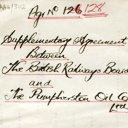 Agt No 126 128
Supplementary Agreement
Between
The British Railways Board
and
The Pumpherston Oil Co